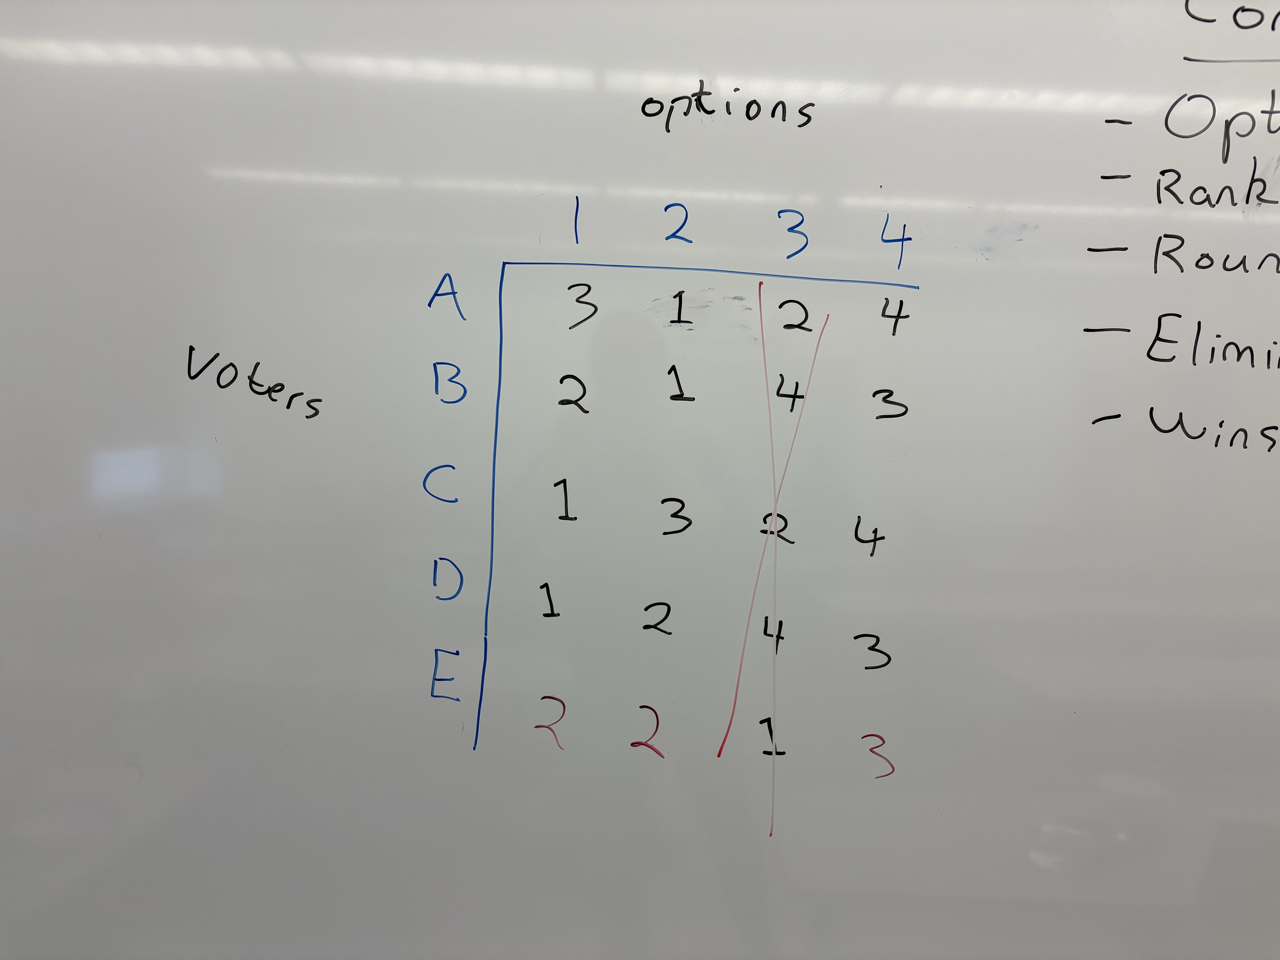 options
1 2 3 4
A 3 1 2 4
Voters
B 2 1 4 3
C 1 3 2 4
D 1 2 4 3
E 2 2 1 3
Con
- Opt
- Rank
- Roun
- Elimi
- Wins